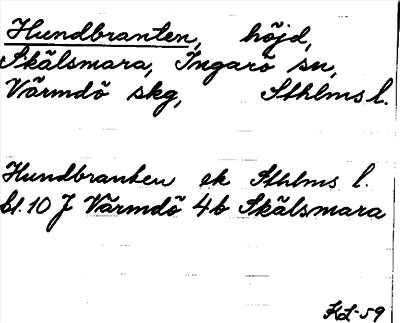 Hundbranten, höjd,
Skälsmara, Ingarö sn,
Värmdö skg, Sthlms l.
Hundbranten ek Sthlms l.
bl. 10 J Värmdö 4b Skälsmara
KL-59